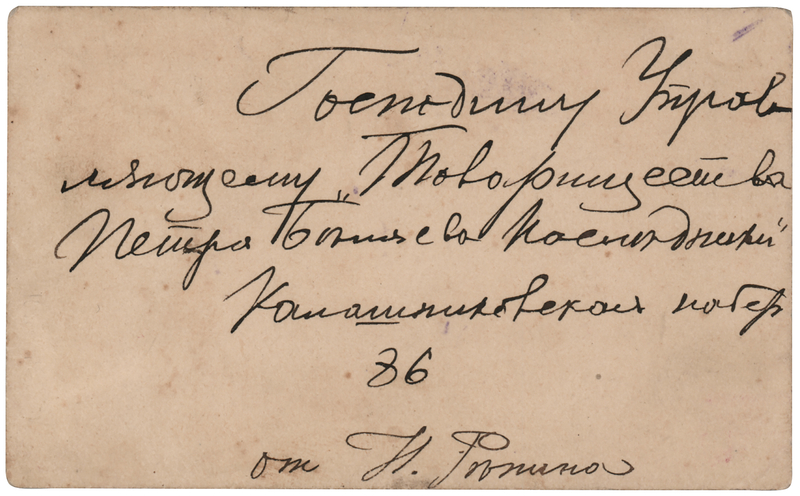 Господину Управ
ляющему „Товарищества
Петра Боткина Наследники"
Калашниковская набер
86
от И. Рѣпина